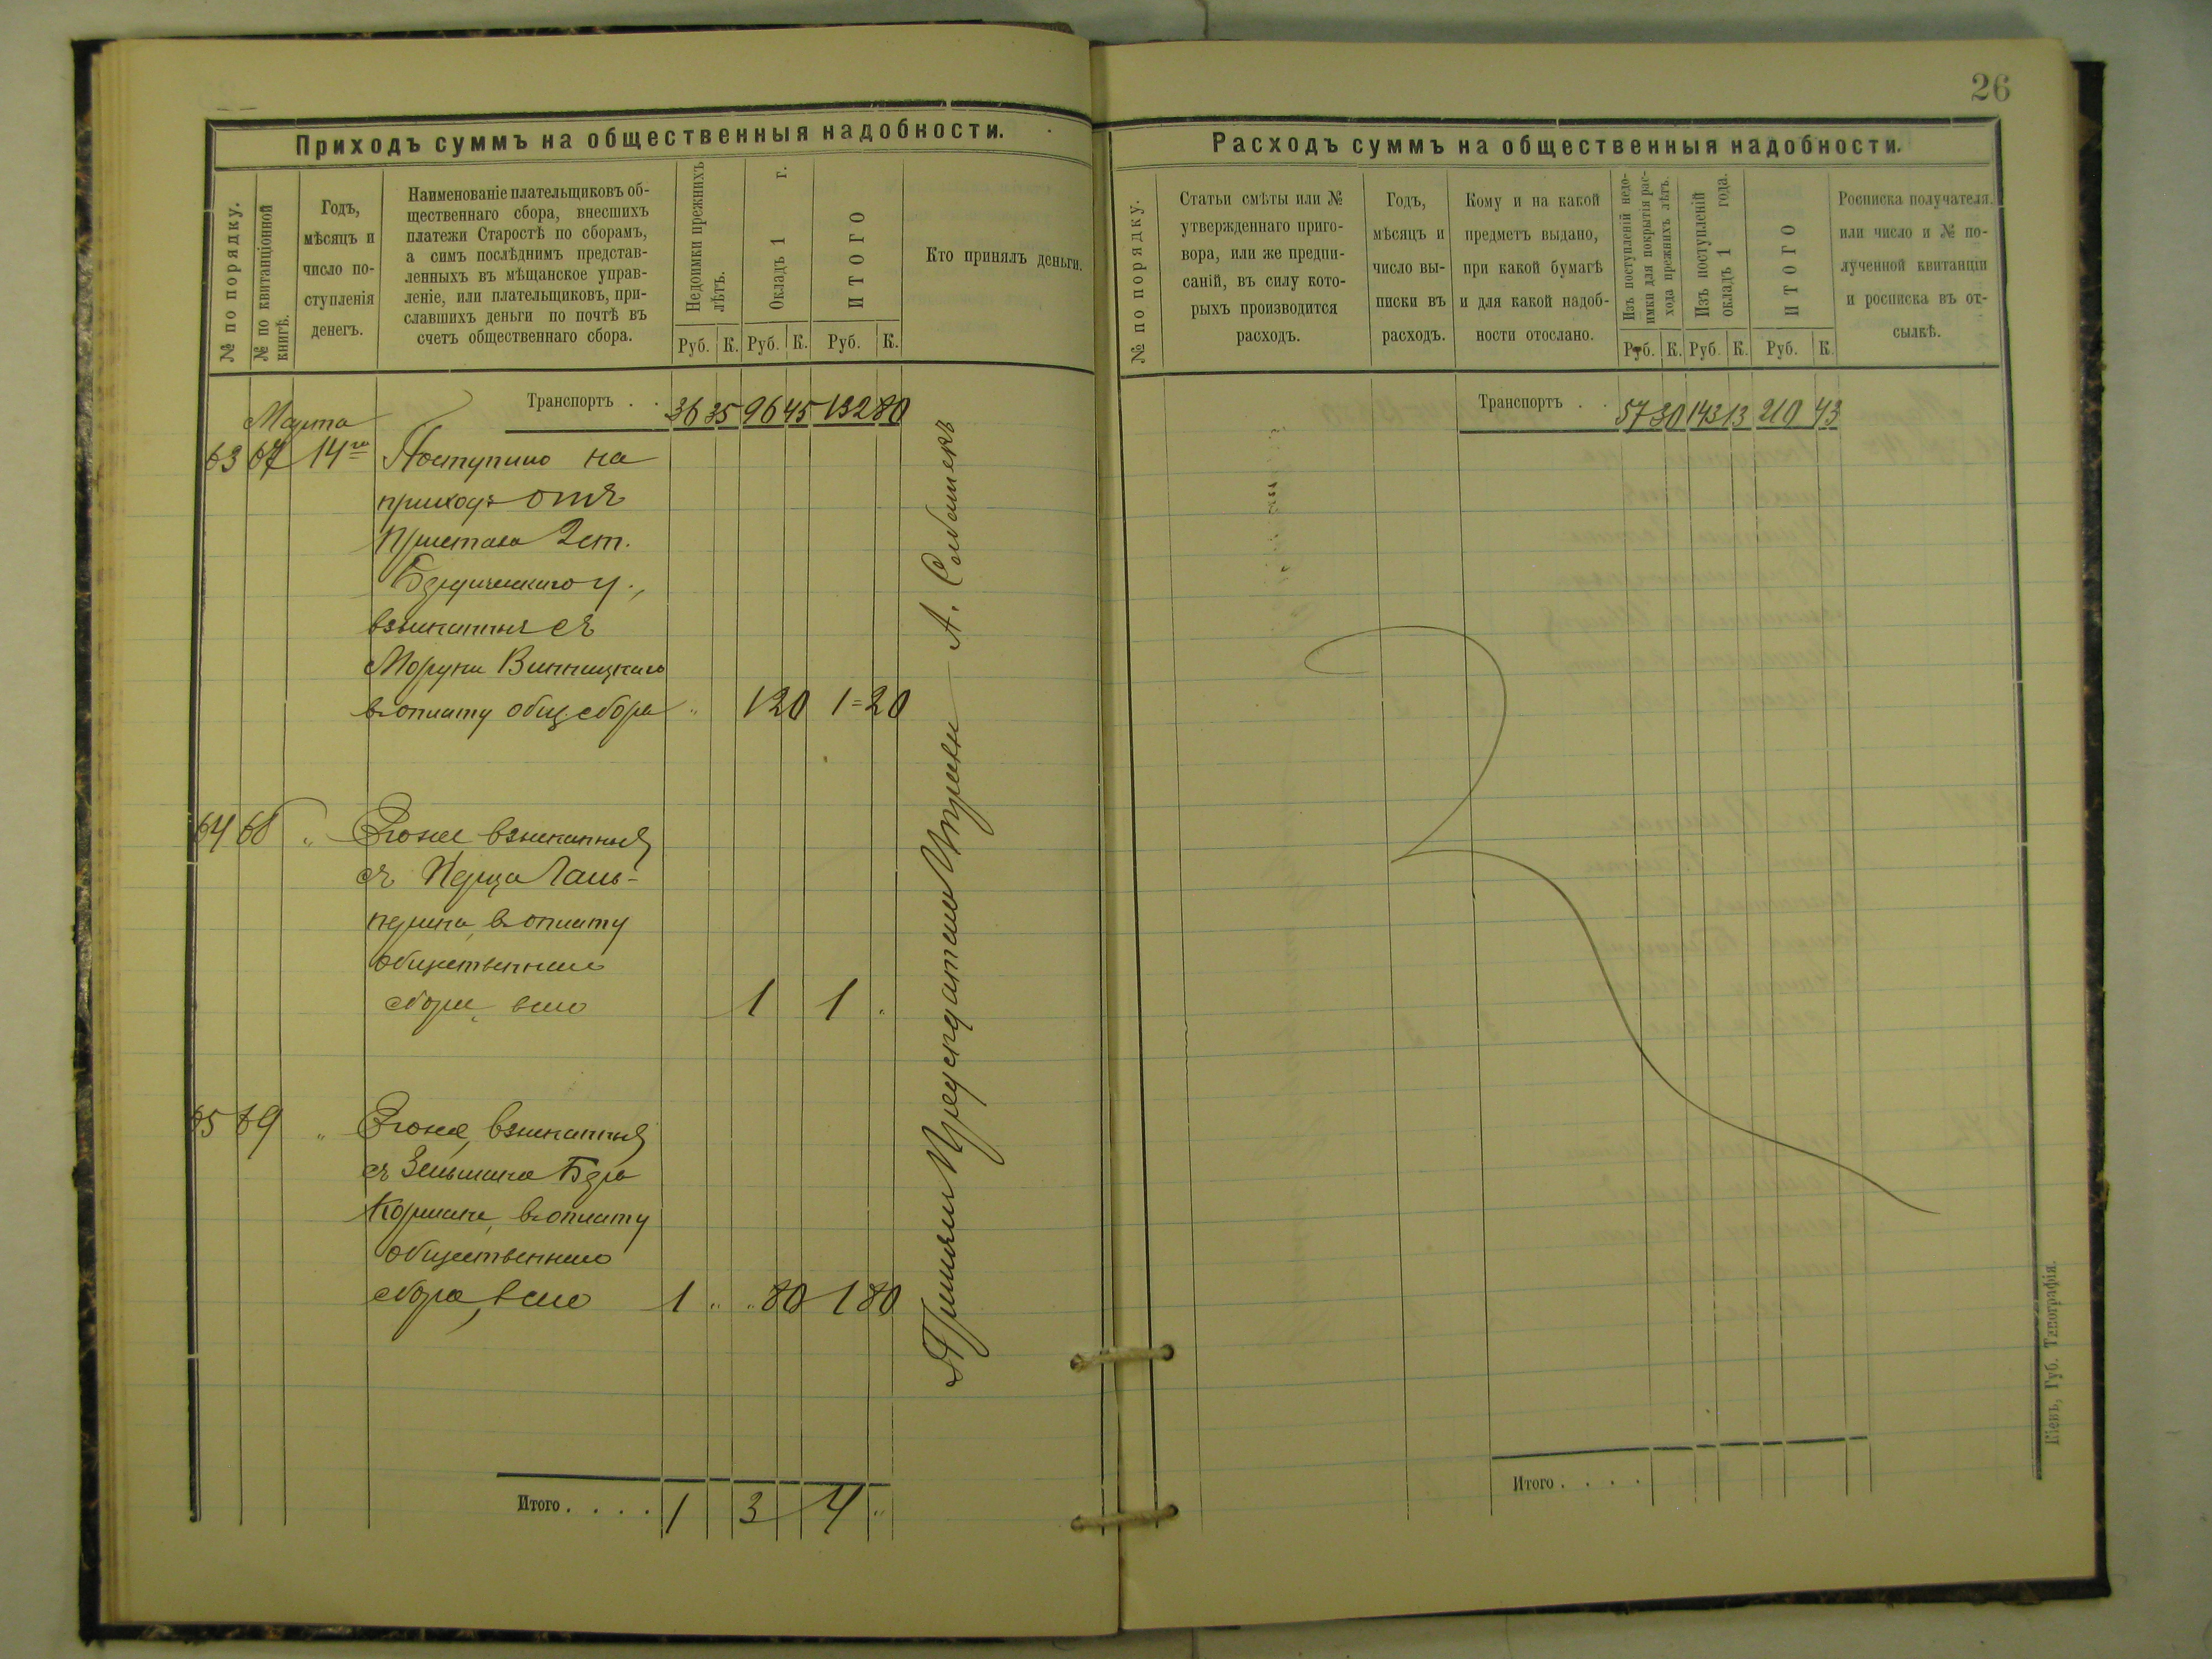 26
Приходъ суммъ на общественныя надобности.
№ по порядку.
№ по квитанціонной
книгѣ.
Годъ,
мѣсяцъ и
число по-
ступленія
денегъ.
Наименованіе плательщиковъ об-
щественнаго сбора, внесшихъ
платежи Старостѣ по сборамъ,
а симъ послѣднимъ представ-
ленныхъ въ мѣщанское управ-
леніе, или плательщиковъ, при-
славшихъ деньги по почтѣ въ
счетъ общественнаго сбора.
Недоимки прежнихъ
лѣтъ.
Окладъ 1 г.
ИТОГО
Кто принялъ деньги.
Руб. К. Руб. К. Руб. К.
Транспортъ . . 36 35 96 45 132 80
Марта
63 67 14го Поступило на
приходъ отъ
Пристава 2 ст.
Бердическаго у.,
взысканныя съ
Моруки Винницкаго
въ оплату общ сбора " 1 20 1=20
64 68 " Его же взысканныя
съ Перца Галь-
перина, въ оплату
общественнаго
сбора, всего 1 1 "
65 69 " Его же, взысканныя
съ Зельмана Бера
Кормана, въ оплату
общественнаго
сбора, всего 1 " " 80 1 80
Итого . . . . 1 3 4 "
Приняли Предсѣдатель
А.
Расходъ суммъ на общественныя надобности.
№ по порядку.
Статьи смѣты или №
утвержденнаго приго-
вора, или же предпи-
саній, въ силу кото-
рыхъ производится
расходъ.
Годъ,
мѣсяцъ и
число вы-
писки въ
расходъ.
Кому и на какой
предметъ выдано,
при какой бумагѣ
и для какой надоб-
ности отослано.
Изъ поступленій недо-
имки для покрытія рас-
хода прежнихъ лѣтъ.
Изъ поступленій
окладъ 1 года.
ИТОГО
Росписка получателя.
или число и № по-
лученной квитанціи
и росписка въ от-
сылкѣ.
Руб. К. Руб. К. Руб. К.
Транспортъ . . 57 30 143 13 210 43
Итого . . . .
Кіевъ, Губ. Типографія.